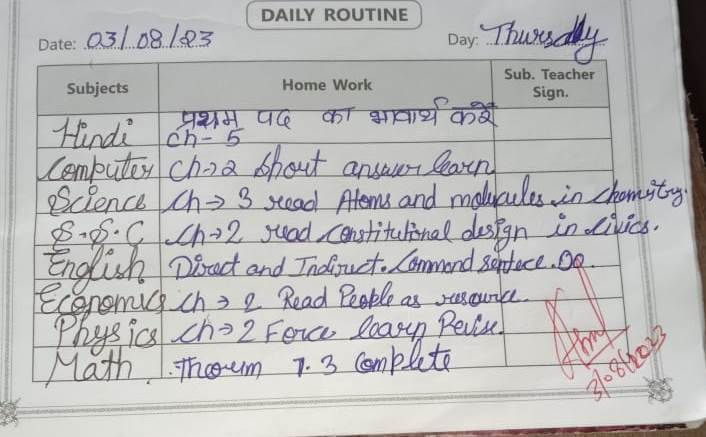 DAILY ROUTINE
Date: 03/08/23 Day: Thursday
Subjects Home Work Sub. Teacher Sign.
प्रथम पद का भावार्थ करें
Hindi ch-5
Computer Ch→2 short answer learn
Science Ch→3 read Atoms and molucules in chemistry.
S.S.C Ch→2 read constitutional design in civics.
English Direct and Indiruct. Command sentece. Do
Economics ch→2 Read People as resource.
Physics ch→2 Force learn
Math. Thorum 7.3 Complete
3/08/2023